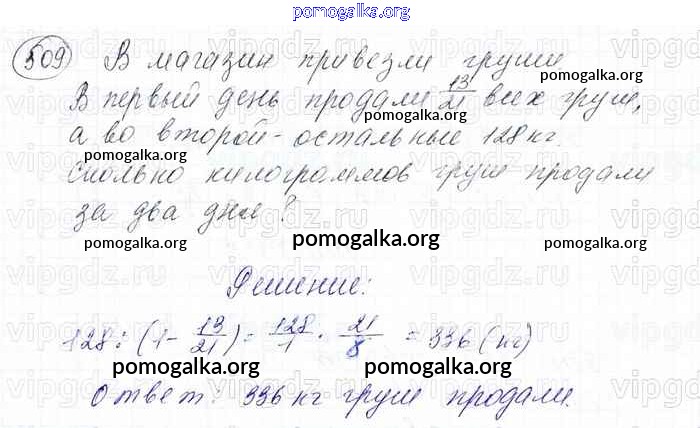 pomogalka.org
509 В магазин привезли груши
pomogalka.org
В первый день продали 13/21 всех груш,
pomogalka.org
а во второй - остальные 128 кг.
pomogalka.org
Сколько килограммов груш продали
за два дня?
pomogalka.org pomogalka.org pomogalka.org
Решение:
128 : (1 - 13/21) = 128/1 · 21/8 = 336 (кг)
pomogalka.org pomogalka.org
Ответ: 336 кг груш продали.
vipgdz.ru